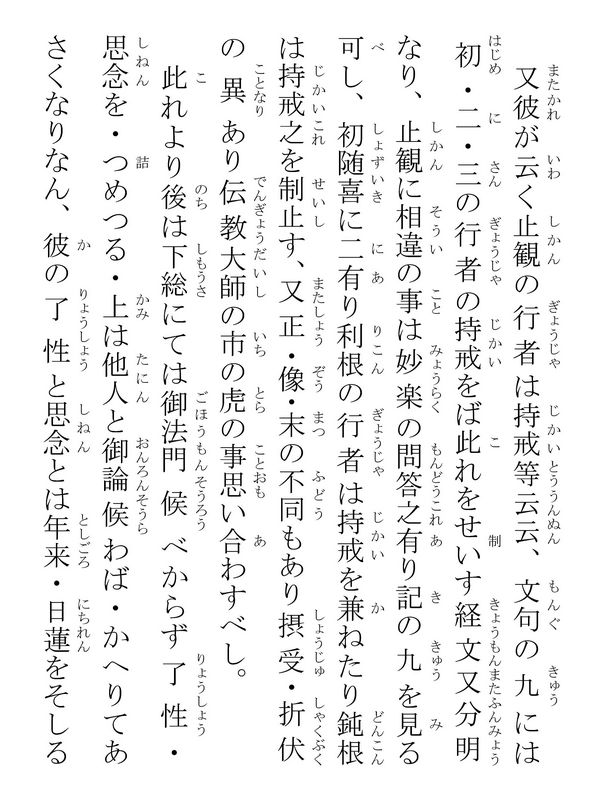 又彼が云く止観の行者は持戒等云云、文句の九には
初・二・三の行者の持戒をば此れをせいす経文又分明
なり、止観に相違の事は妙楽の問答之有り記の九を見る
可し、初随喜に二有り利根の行者は持戒を兼ねたり鈍根
は持戒之を制止す、又正・像・末の不同もあり摂受・折伏
の異あり伝教大師の市の虎の事思い合わすべし。
此れより後は下総にては御法門候べからず了性・
思念を・つめつる・上は他人と御論候わば・かへりてあ
さくなりなん、彼の了性と思念とは年来・日蓮をそしる